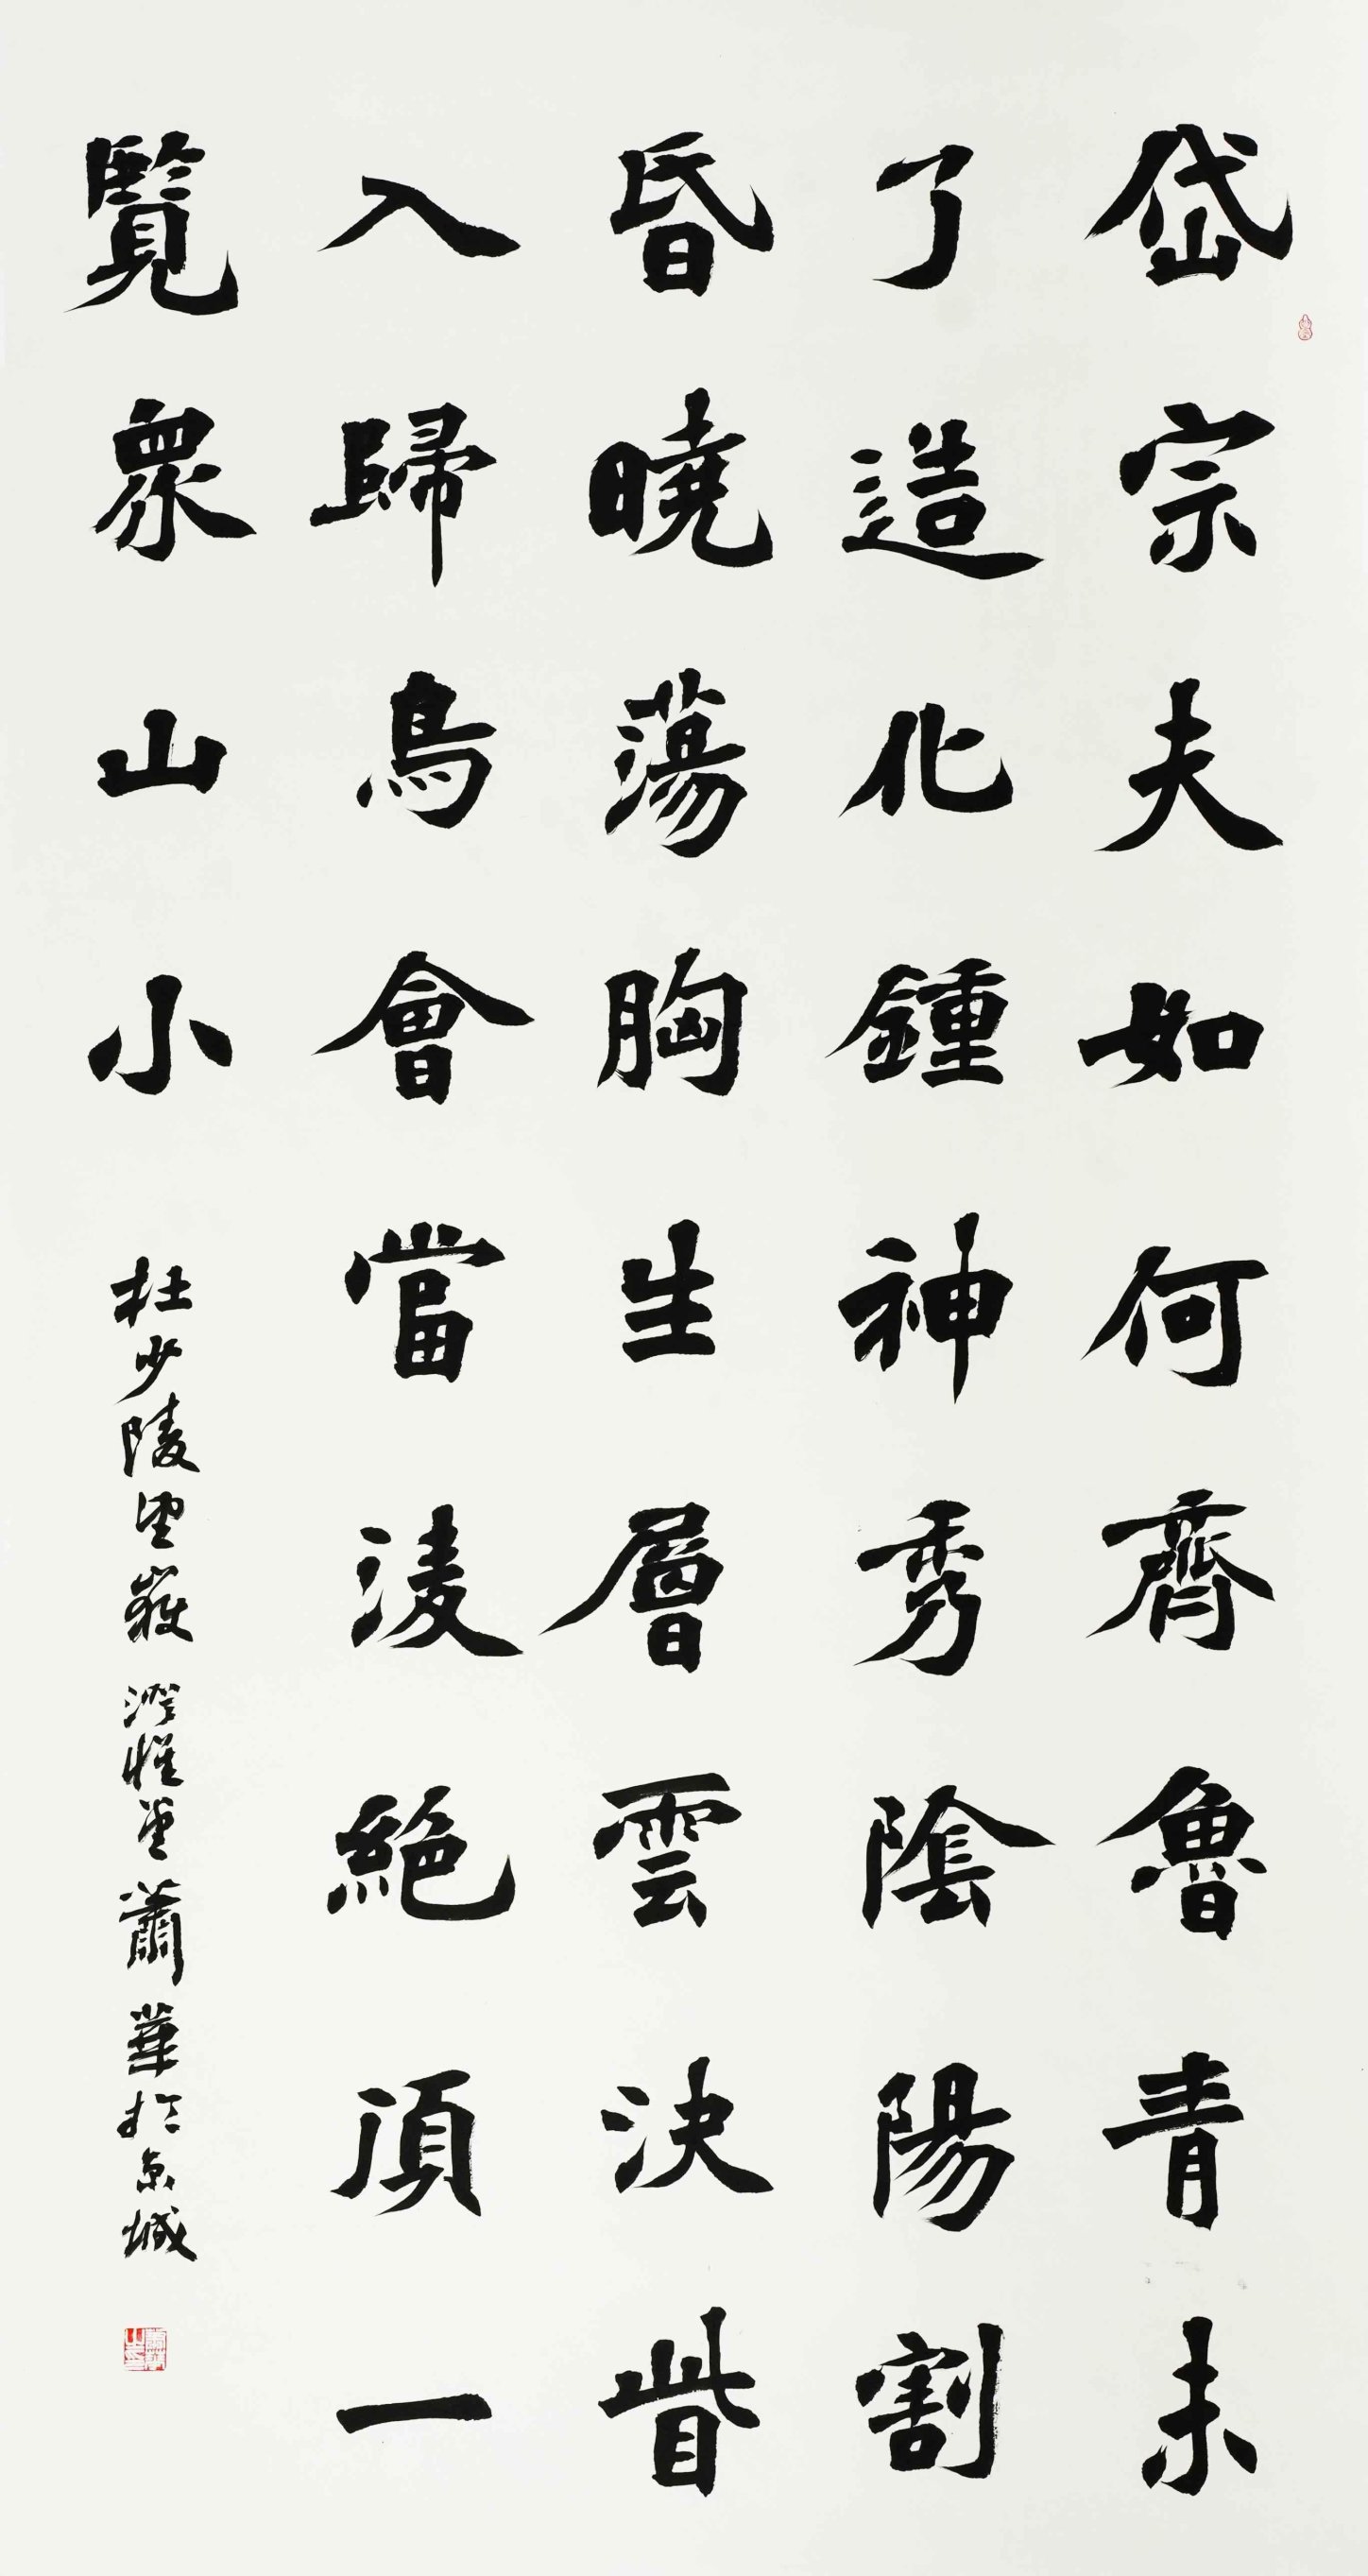 岱宗夫如何齊魯青未
了造化鍾神秀陰陽割
昏曉蕩胸生層雲決眥
入歸鳥會當淩絶頂一
覽衆山小
杜少陵望嶽 堂蕭華於京城